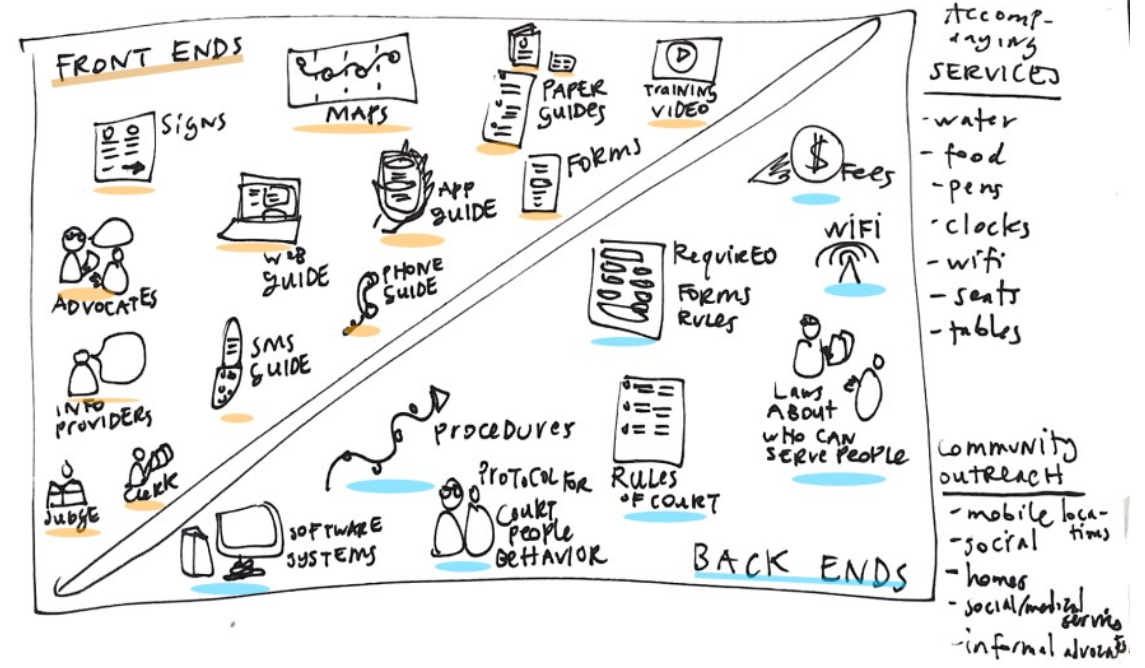 FRONT ENDS
MAPS
PAPER
GUIDES
TRAINING
VIDEO
SIGNS
FORMS
APP
GUIDE
WEB
GUIDE
PHONE
GUIDE
ADVOCATES
SMS
GUIDE
INFO
PROVIDERS
JUDGE
CLERK
$
Fees
WIFI
RequireD
FORMS
RULES
LAWS
ABOUT
WHO CAN
SERVE PEOPLE
Procedures
RULES
OF COURT
PROTOCOL FOR
COURT
PEOPLE
BEHAVIOR
SOFTWARE
SYSTEMS
BACK ENDS
Accomp-
daying
SERVICES
- water
- food
- pens
- clocks
- wifi
- seats
- tables
Community
outreach
- mobile loca-
tions
- social
- homes
- social/medical
services
- informal advocates